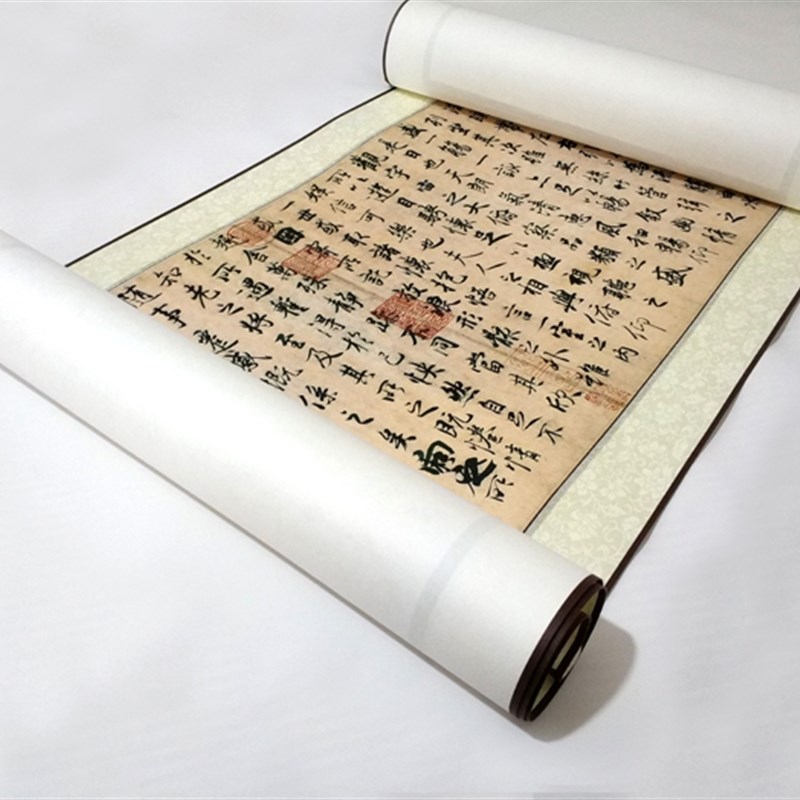 列坐其次雖無絲竹管弦之
盛一觴一詠亦足以暢敘幽情
是日也天朗氣清惠風和暢仰
觀宇宙之大俯察品類之盛
所以遊目騁懷足以極視聽之
娛信可樂也夫人之相與俯仰
一世或取諸懷抱悟言一室之內
或因寄所託放浪形骸之外雖
趣舍萬殊靜躁不同當其欣
於所遇暫得於己怏然自足不
知老之將至及其所之既惓情
隨事遷感慨係之矣向之所